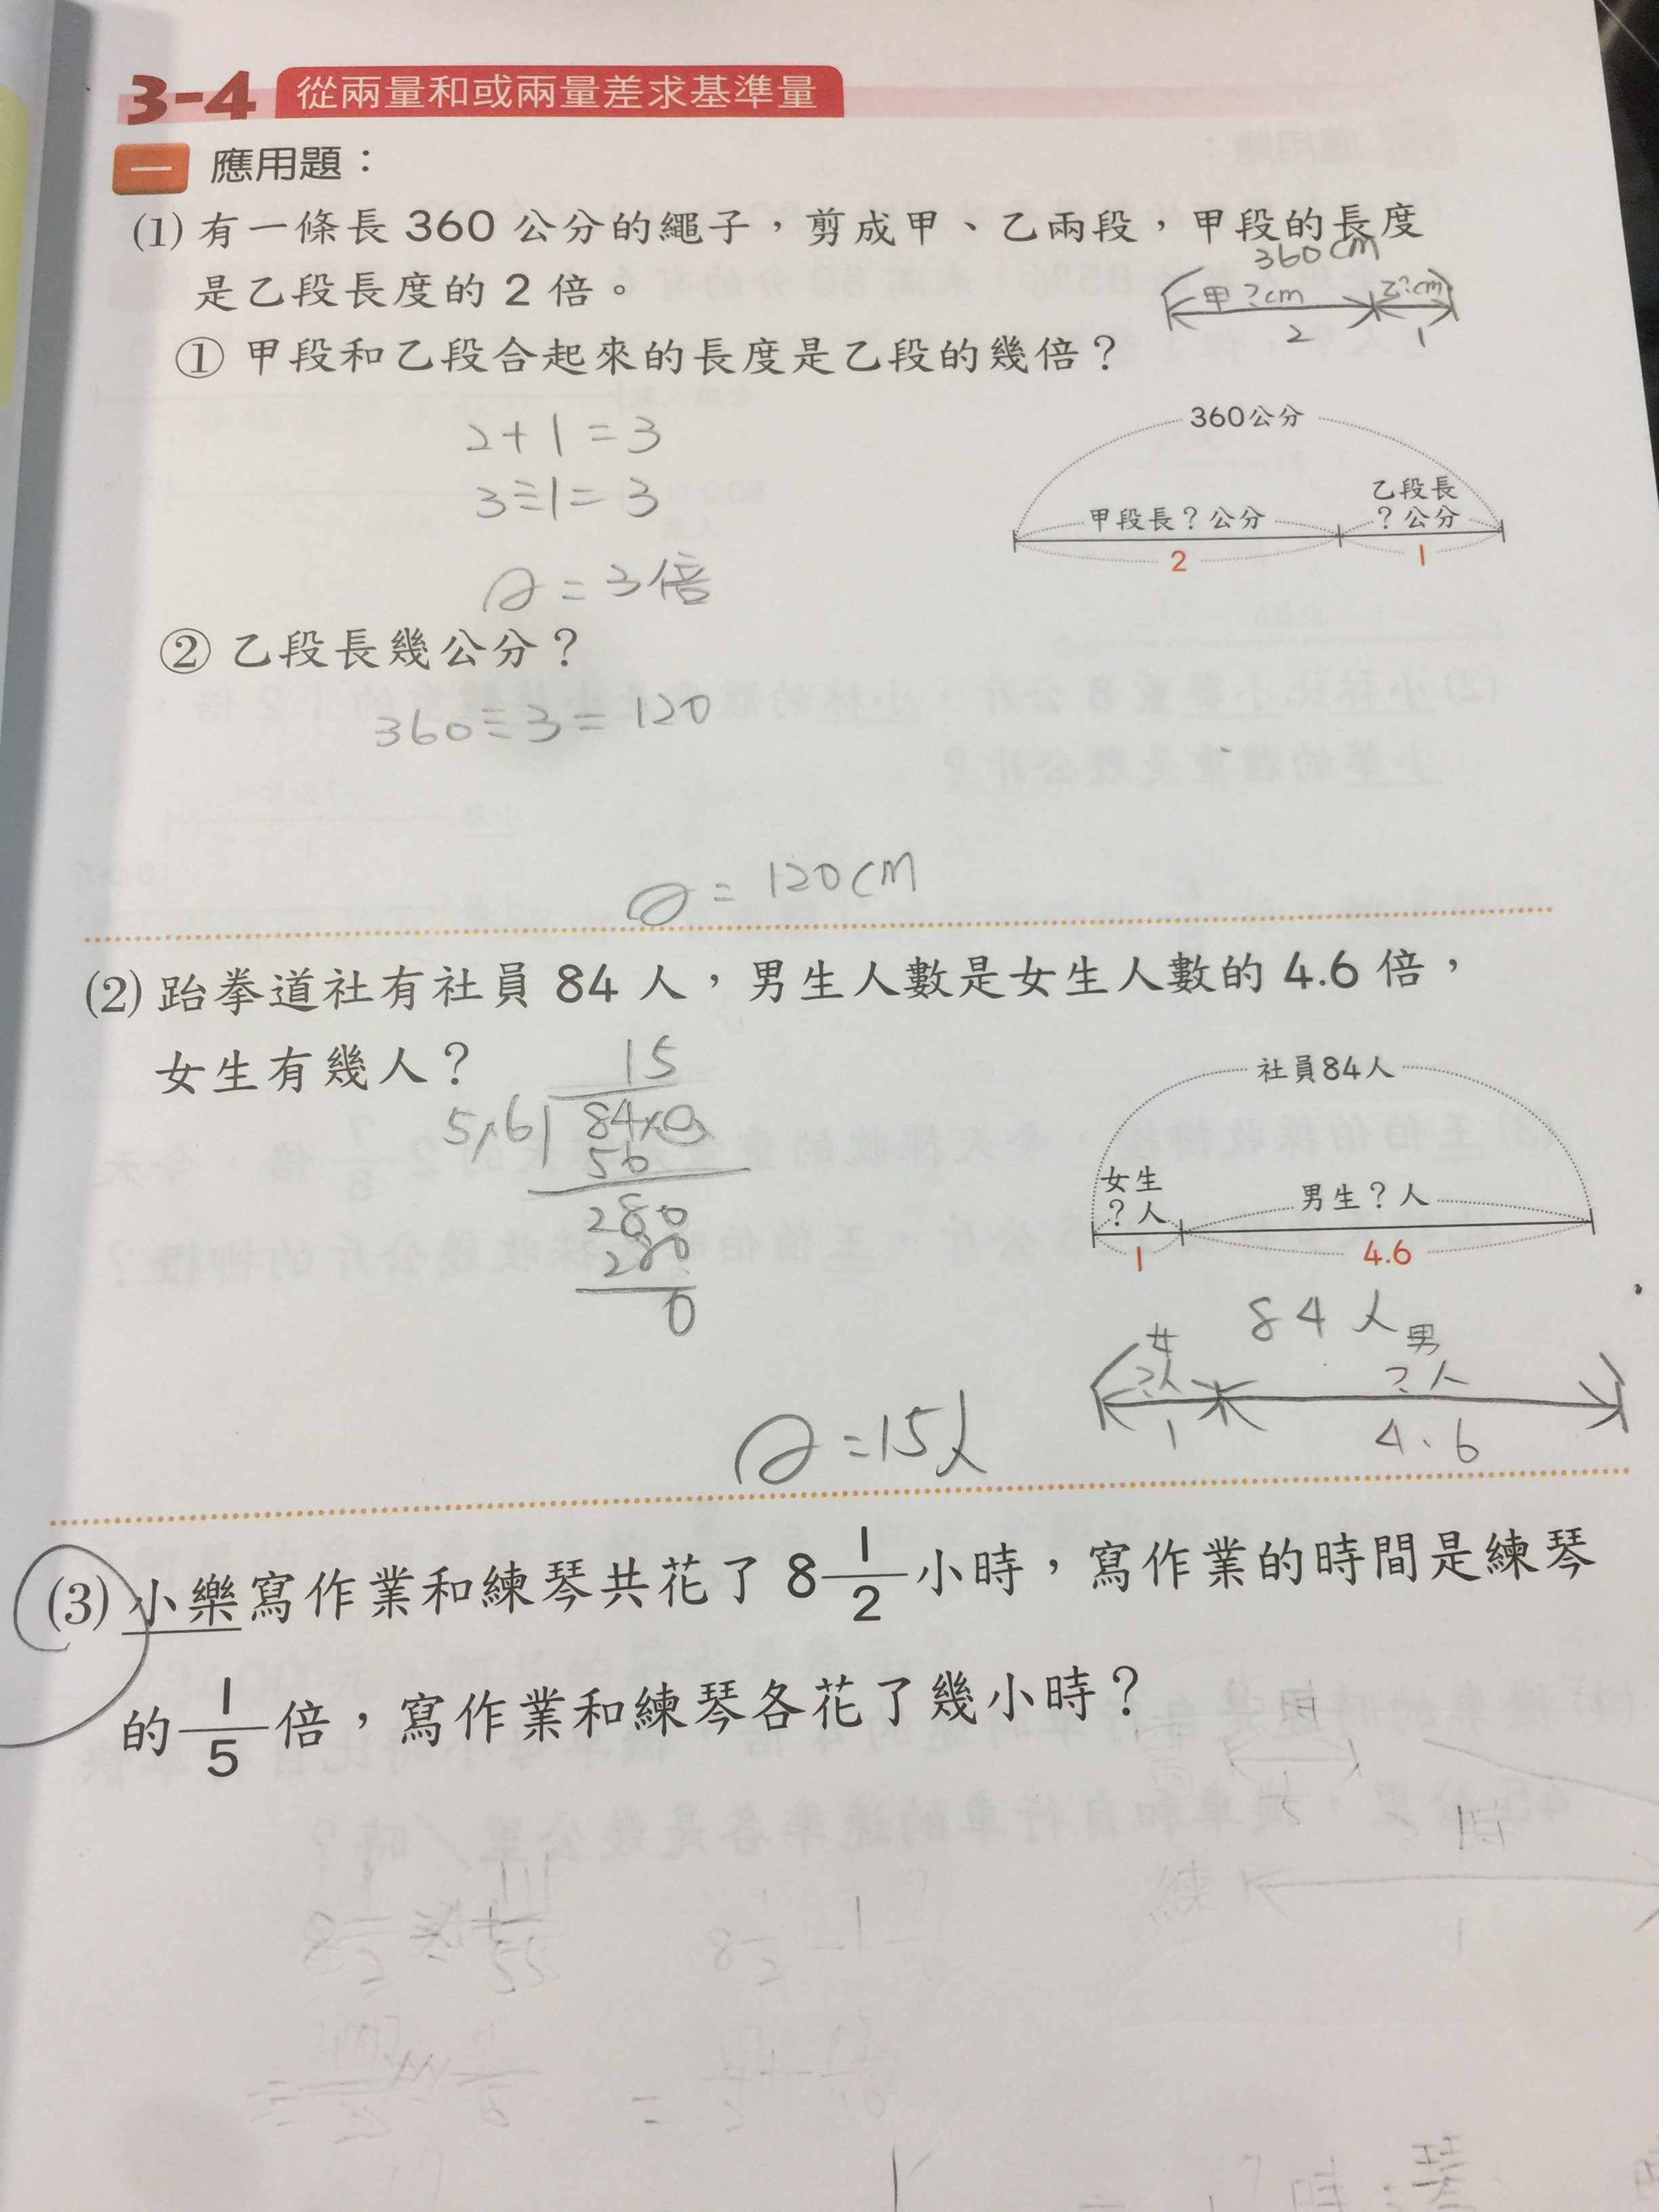 3-4 從兩量和或兩量差求基準量
一 應用題：
(1) 有一條長 360 公分的繩子，剪成甲、乙兩段，甲段的長度
是乙段長度的 2 倍。
360cm
甲?cm 乙?cm
2 1
① 甲段和乙段合起來的長度是乙段的幾倍？
2+1=3
3÷1=3
360公分
甲段長？公分
乙段長
？公分
2 1
a=3倍
② 乙段長幾公分？
360÷3=120
a=120cm
(2) 跆拳道社有社員 84 人，男生人數是女生人數的 4.6 倍，
女生有幾人？
15
5.6 84.0
56
280
280
0
社員84人
女生
？人
男生？人
1 4.6
84人
女 男
?人 ?人
1 4.6
a=15人
(3) 小樂寫作業和練琴共花了 8 1/2 小時，寫作業的時間是練琴
的 1/5 倍，寫作業和練琴各花了幾小時？
練
1
8 1/2